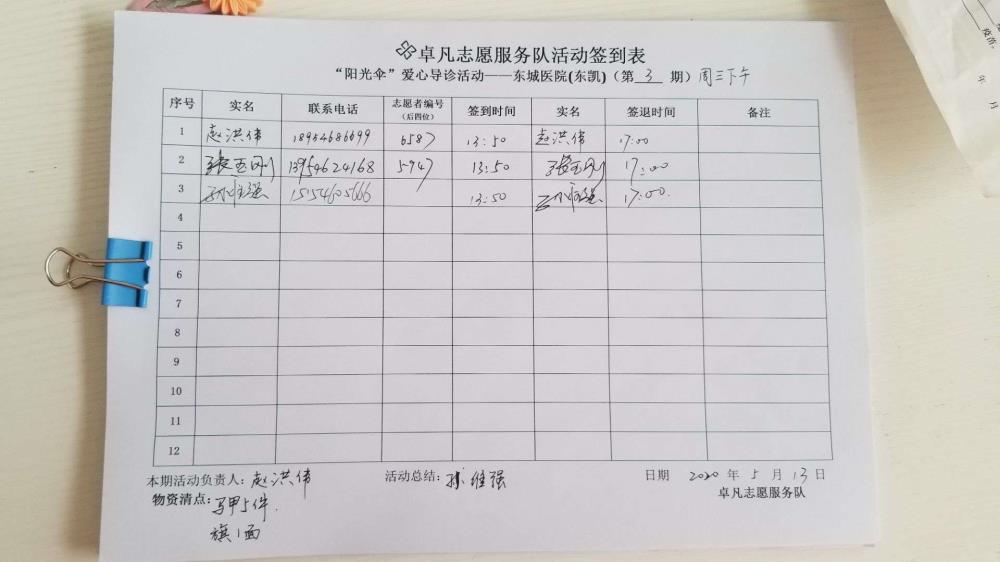 卓凡志愿服务队活动签到表
“阳光伞”爱心导诊活动——东城医院(东凯)（第 3 期）周三下午
序号 实名 联系电话 志愿者编号（后四位） 签到时间 实名 签退时间 备注
1 赵洪伟 18954686699 6587 13:50 赵洪伟 17:00
2 张玉刚 13954624168 5947 13:50 张玉刚 17:00
3 孙维强 15154605666 13:50 孙维强 17:00.
4
5
6
7
8
9
10
11
12
本期活动负责人：赵洪伟 活动总结：孙维强 日期 2020 年 5 月 13 日
物资清点：马甲5件. 卓凡志愿服务队
旗1面